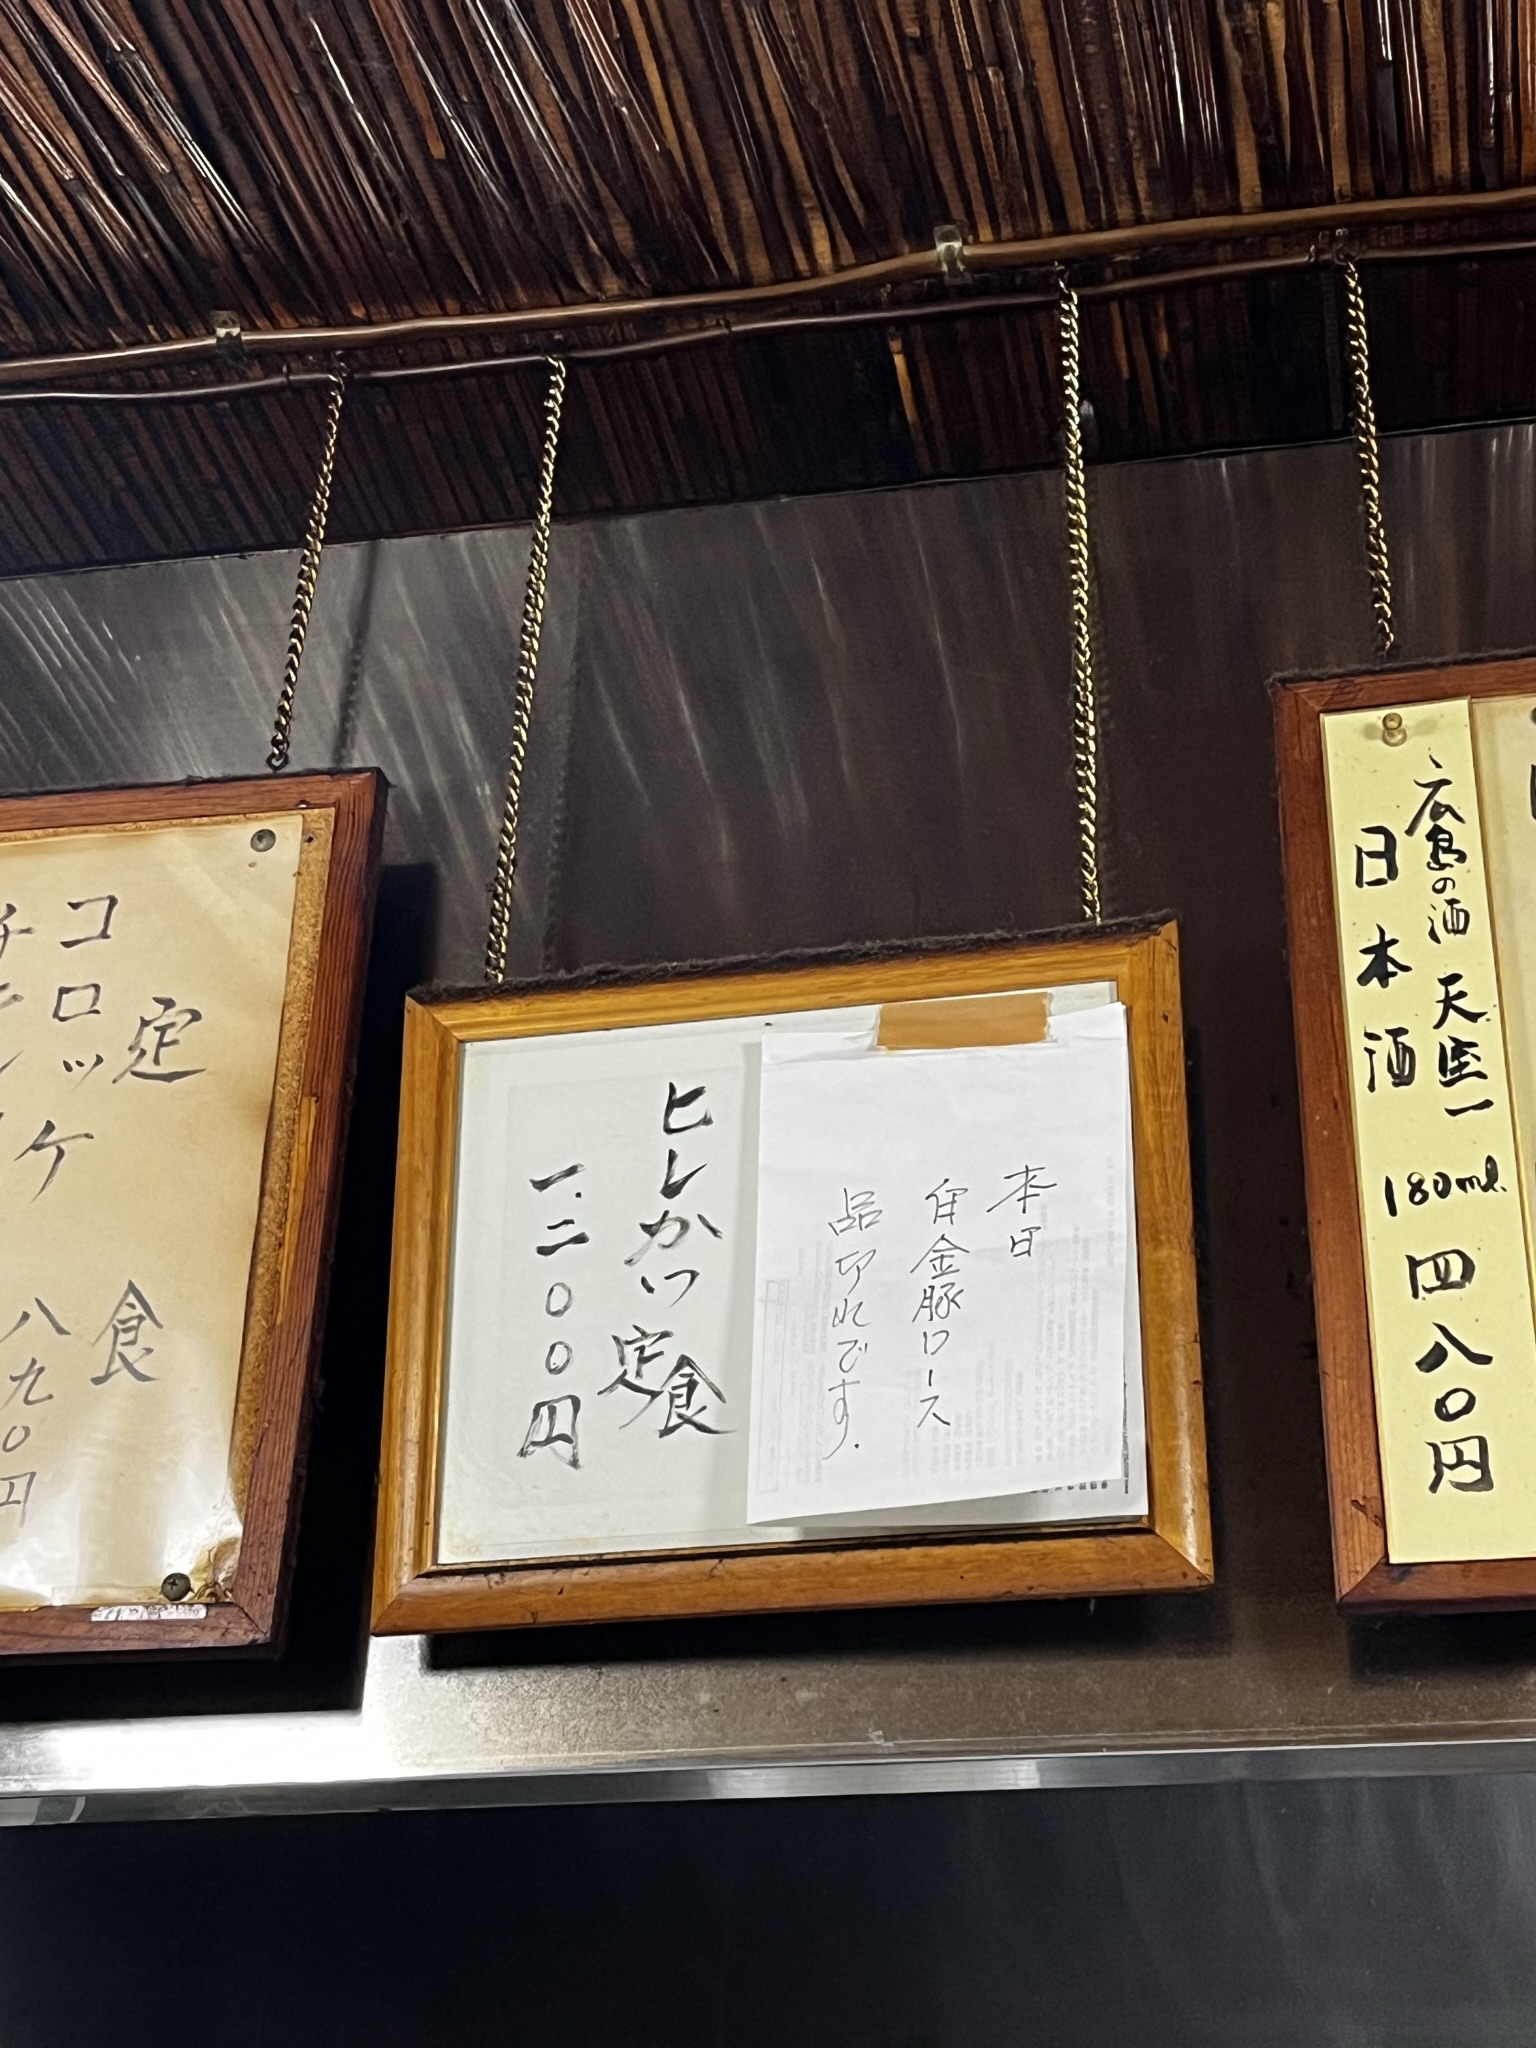 広島の酒 天寶一 180ml. 四八〇円
日本酒
本日
白金豚ロース
品切れです.
ヒレかつ定食
一.二〇〇円
定食
コロッケ 八九〇円